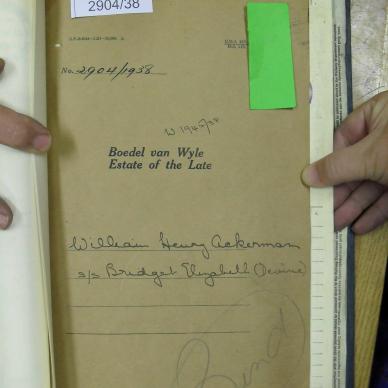 2904/38
No. 2904/1938
W 1945/38
Boedel van Wyle
Estate of the Late
William Henry Ackerman
s/s Bridget Elizabeth (Devine)
Bind